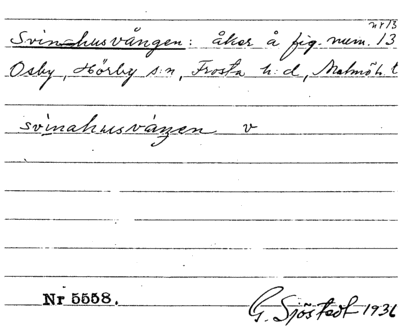 nr 13
Svinahusvången: åker å fig. num. 13
Osby, Hörby s:n, Frosta h:d, Malmöh. l
svinahusvåŋen v
Nr 5558.
G. Sjöstedt 1936